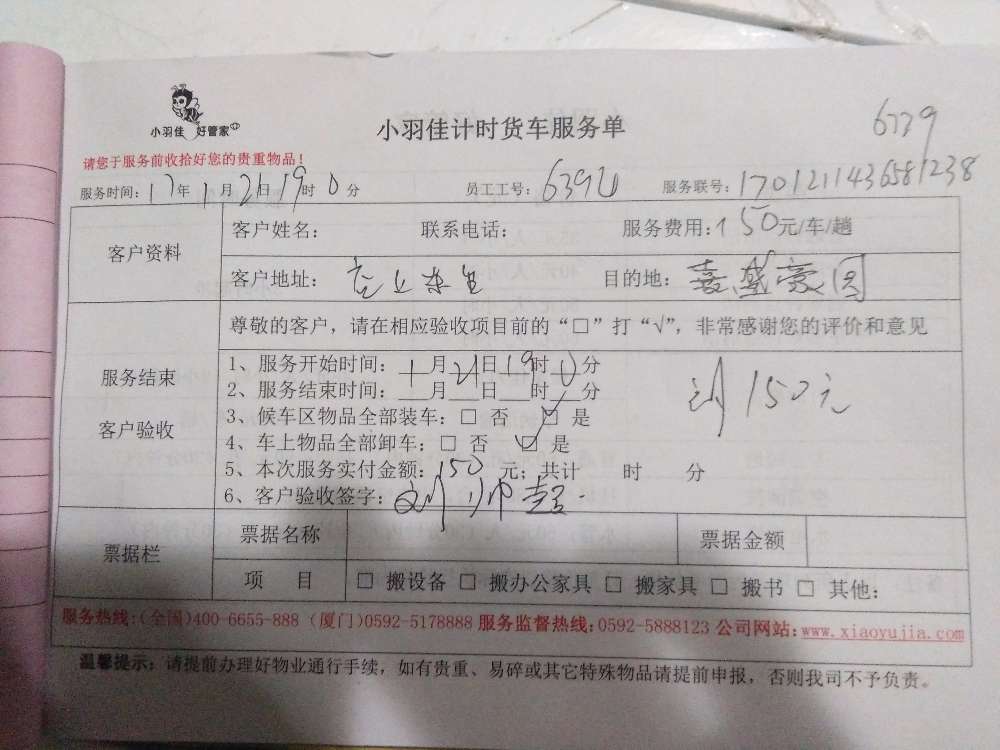 小羽佳 好管家
小羽佳计时货车服务单
6739
请您于服务前收拾好您的贵重物品！
服务时间：17年1月21日19时0分 员工工号： 服务联号：1701211436581238
客户资料
客户姓名： 联系电话： 服务费用：150元/车/趟
客户地址： 目的地：嘉盛豪园
服务结束
客户验收
尊敬的客户，请在相应验收项目前的“□”打“√”，非常感谢您的评价和意见
1、服务开始时间：1月21日19时0分
2、服务结束时间：___月___日___时___分
3、候车区物品全部装车：□ 否 □ 是
4、车上物品全部卸车：□ 否 ☑ 是
150元
5、本次服务实付金额：150元；共计 时 分
6、客户验收签字：刘帅超
票据栏
票据名称 票据金额
项 目 □ 搬设备 □ 搬办公家具 □ 搬家具 □ 搬书 □ 其他：
服务热线：(全国)400-6655-888 (厦门)0592-5178888 服务监督热线：0592-5888123 公司网站：www.xiaoyujia.com
温馨提示：请提前办理好物业通行手续，如有贵重、易碎或其它特殊物品请提前申报，否则我司不予负责。